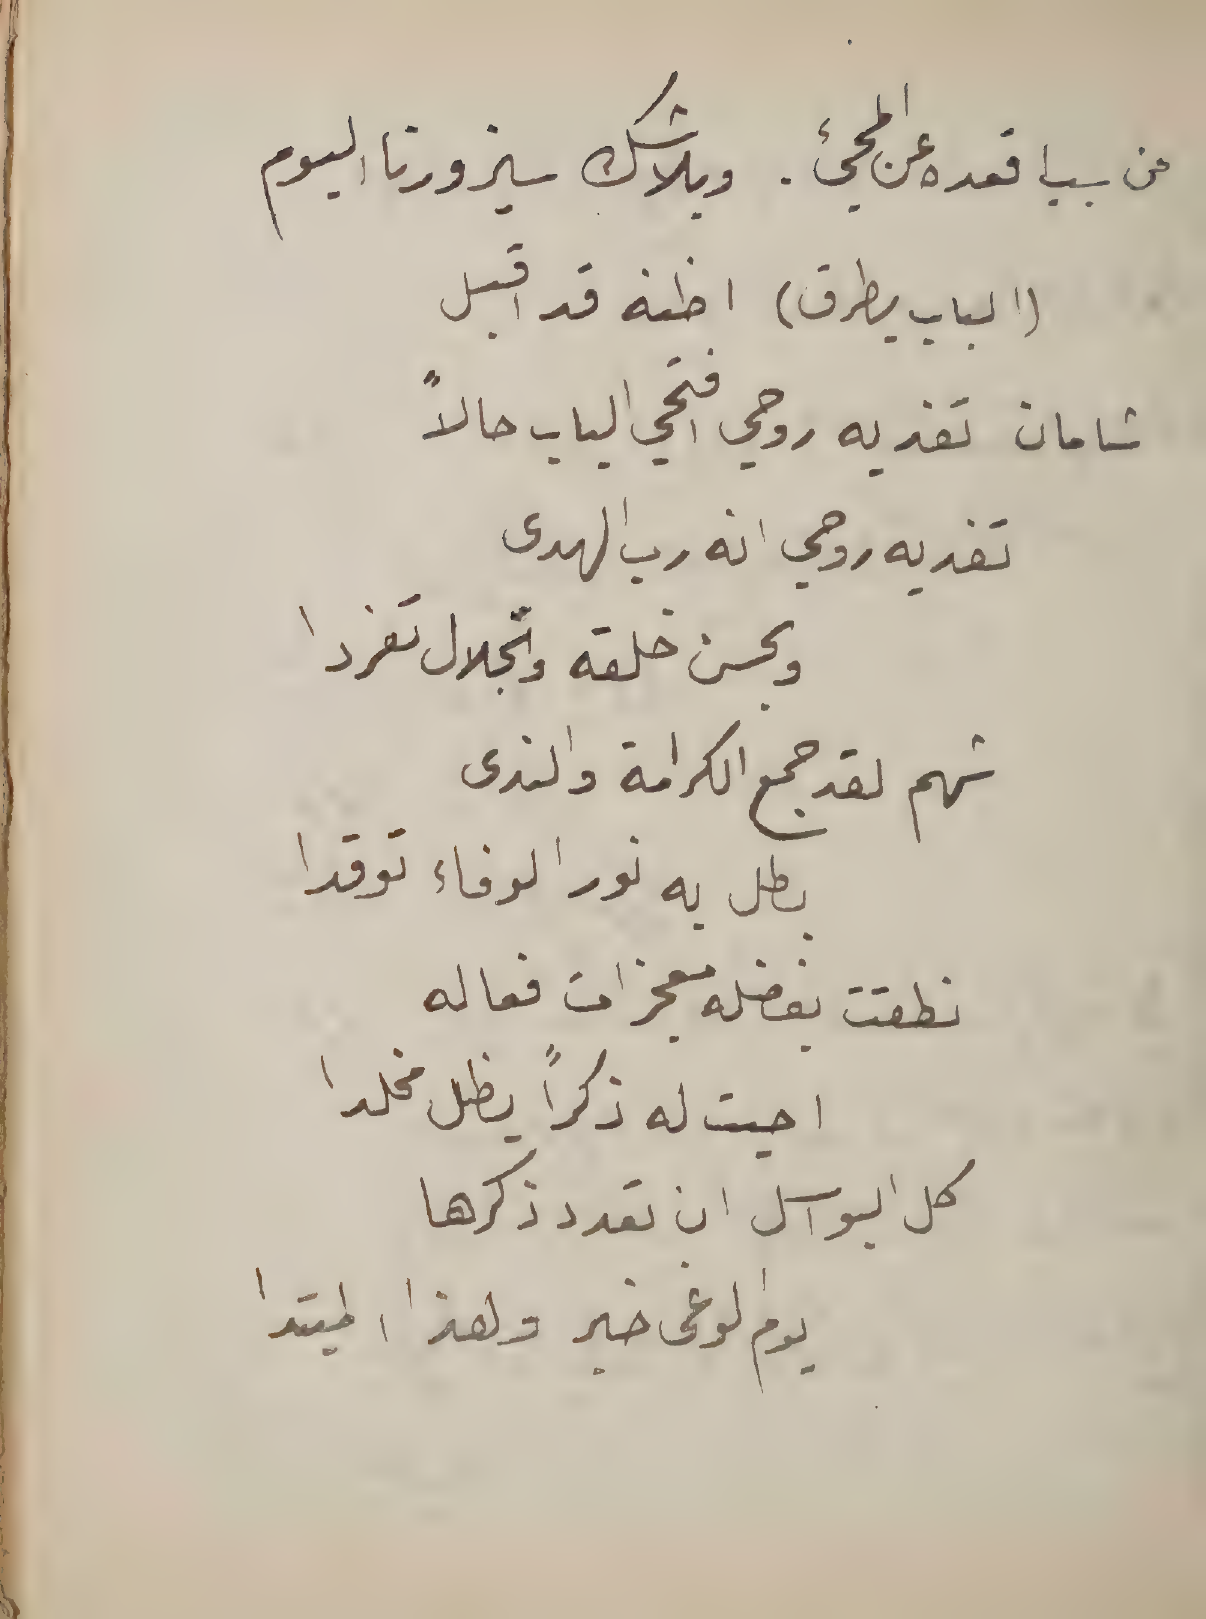 عن سبب اقعده عن المجئ . وبلاشك سيزورنا اليوم
(الباب يطرق) اظنه قد اقبل
شامان تفديه روحي افتحي الباب حالاً
تفديه روحي انه رب الهدى
وبحسن خلقه والجلال تفردا
شهم لقد جمع الكرامة والندى
بطل به نور الوفاء توقدا
نطقت بفضله معجزات فعاله
احيت له ذكراً يظل مخلدا
كل البواسل ان تعدد ذكرها
يوم الوغى خبر ولهذا المبتدا